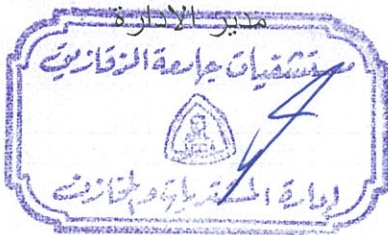 مدير الادارة
مستشفيات جامعة الزقازيق
ادارة المشتريات والمخازن